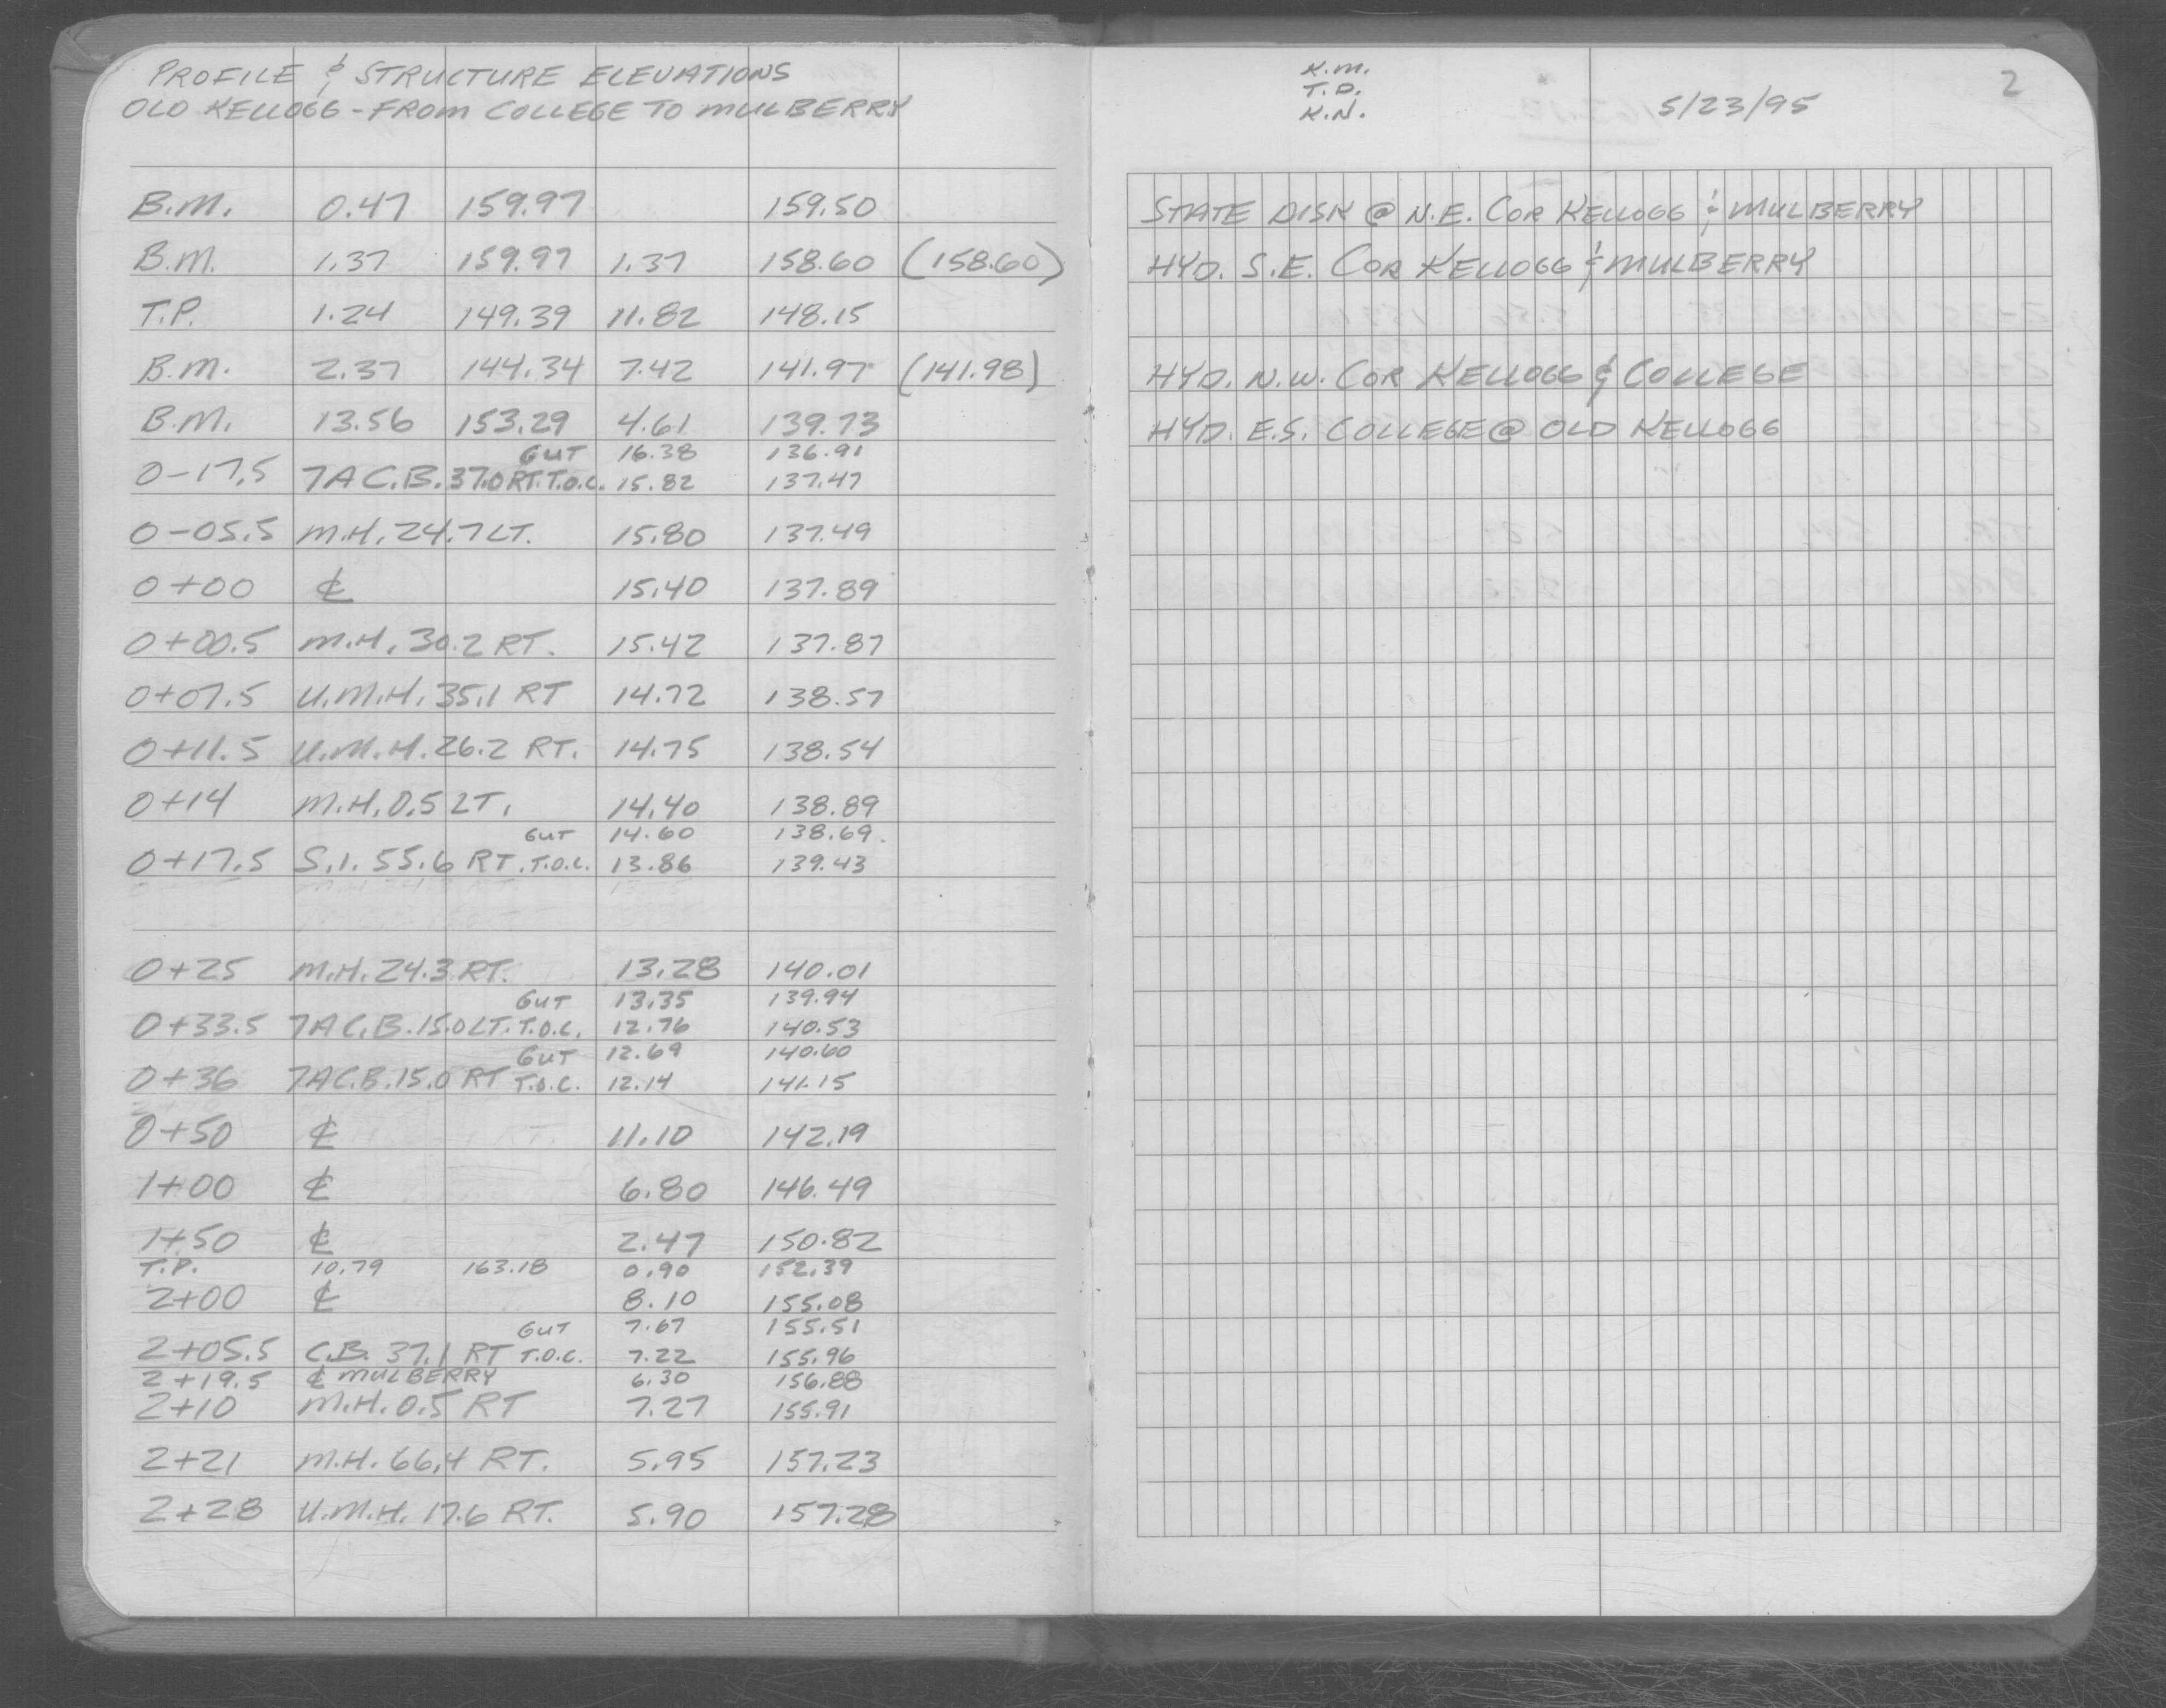 PROFILE & STRUCTURE ELEVATIONS
OLD KELLOGG - FROM COLLEGE TO MULBERRY
B.M. 0.47 159.97 159.50
B.M. 1.37 159.97 1.37 158.60 (158.60)
T.P. 1.24 149.39 11.82 148.15
B.M. 2.37 144.34 7.42 141.97 (141.98)
B.M. 13.56 153.29 4.61 139.73
GUT 16.38 136.91
0-17.5 7A C.B. 37.0 RT. T.O.C. 15.82 137.47
0-05.5 M.H. 24.7 LT. 15.80 137.49
0+00 ℄ 15.40 137.89
0+00.5 M.H. 30.2 RT. 15.42 137.87
0+07.5 U.M.H. 35.1 RT 14.72 138.57
0+11.5 U.M.H. 26.2 RT. 14.75 138.54
0+14 M.H. 0.5 LT. 14.40 138.89
GUT 14.60 138.69
0+17.5 S.I. 55.6 RT. T.O.C. 13.86 139.43
0+25 M.H. 24.3 RT. 13.28 140.01
GUT 13.35 139.94
0+33.5 7A C.B. 15.0 LT. T.O.C. 12.76 140.53
GUT 12.69 140.60
0+36 7A C.B. 15.0 RT T.O.C. 12.14 141.15
0+50 ℄ 11.10 142.19
1+00 ℄ 6.80 146.49
1+50 ℄ 2.47 150.82
T.P. 10.79 163.18 0.90 152.39
2+00 ℄ 8.10 155.08
GUT 7.67 155.51
2+05.5 C.B. 37.1 RT T.O.C. 7.22 155.96
2+19.5 ℄ MULBERRY 6.30 156.88
2+10 M.H. 0.5 RT 7.27 155.91
2+21 M.H. 66.4 RT. 5.95 157.23
2+28 U.M.H. 17.6 RT. 5.90 157.28
K.M.
T.P.
K.N.
5/23/95
2
STATE DISK @ N.E. COR KELLOGG & MULBERRY
HYD. S.E. COR KELLOGG & MULBERRY
HYD. N.W. COR KELLOGG & COLLEGE
HYD. E.S. COLLEGE @ OLD KELLOGG